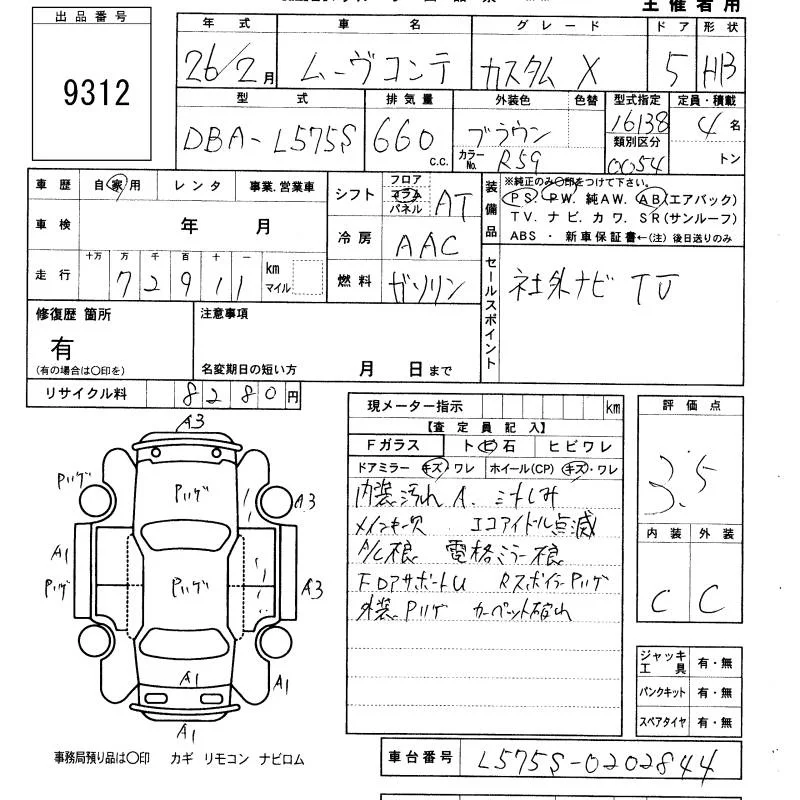 主催者用
出品番号
9312
年式 車名 グレード ドア 形状
26/2月 ムーヴコンテ カスタム X 5 HB
型式 排気量 外装色 色替 型式指定 定員・積載
DBA-L575S 660 c.c. ブラウン 16138 4名
カラーNo. R59 類別区分 0054 トン
車歴 自家用 レンタ 事業.営業車
車検 年 月
走行 十万 万 千 百 十 一 km マイル
7 2 9 1 1
シフト フロア コラム パネル AT
冷房 AAC
燃料 ガソリン
装備品 ※純正のみ〇印をつけて下さい。
PS. PW. 純AW. AB(エアバック)
TV. ナビ. カワ. SR(サンルーフ)
ABS ・ 新車保証書←(注) 後日送りのみ
セールスポイント 社外ナビ TV
修復歴 箇所
有
(有の場合は〇印を)
注意事項
名変期日の短い方 月 日まで
リサイクル料 8280円
現メーター指示 km
【査定員記入】
Fガラス ト ビ 石 ヒビワレ
ドアミラー キズ・ワレ ホイール(CP) キズ・ワレ
内装汚れ A.
メインキー欠 エコアイドル点滅
A/C根 電格ミラー根
FDアサポートU RスポイラーPハゲ
外装Pハゲ カーペット破れ
評価点
3.5
内装 外装
C C
ジャッキ工具 有・無
パンクキット 有・無
スペアタイヤ 有・無
A3
Pハゲ Pハゲ A3
A1
Pハゲ Pハゲ A3
A1 A1
A1
事務局預り品は〇印 カギ リモコン ナビロム
車台番号 L575S-0202844